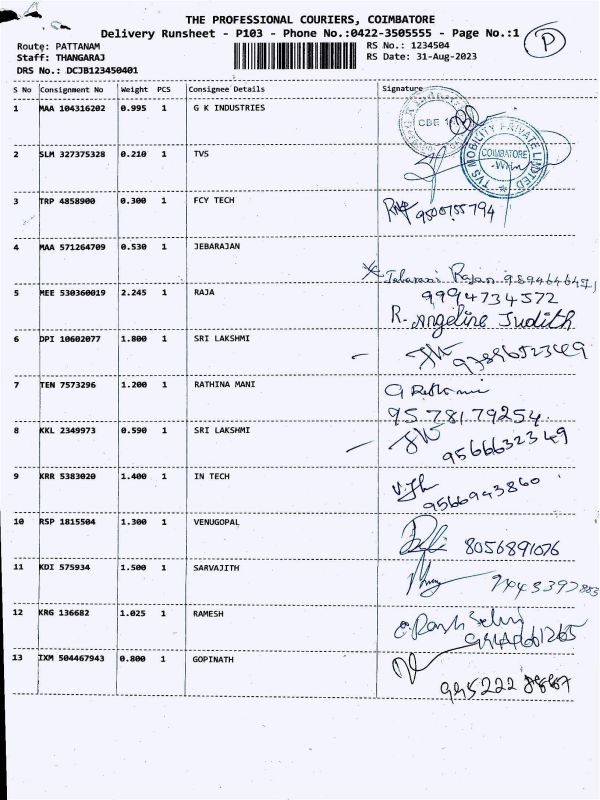 THE PROFESSIONAL COURIERS, COIMBATORE
Delivery Runsheet - P103 - Phone No.:0422-3505555 - Page No.:1
P
Route: PATTANAM
RS No.: 1234504
Staff: THANGARAJ
RS Date: 31-Aug-2023
DRS No.: DCJB123450401
S No Consignment No Weight PCS Consignee Details Signature
1 MAA 104316202 0.995 1 G K INDUSTRIES
CBE
2 SLM 327375328 0.210 1 TVS
TVS MOBILITY PRIVATE LIMITED
COIMBATORE
3 TRP 4858900 0.300 1 FCY TECH
9500755794
4 MAA 571264709 0.530 1 JEBARAJAN
Rajan
5 MEE 530360019 2.245 1 RAJA
9994734572
R. Angeline Judith
6 DPI 10602077 1.800 1 SRI LAKSHMI
7 TEN 7573296 1.200 1 RATHINA MANI
9578179254
8 KKL 2349973 0.590 1 SRI LAKSHMI
9566632349
9 KRR 5383020 1.400 1 IN TECH
9566943860
10 RSP 1815504 1.300 1 VENUGOPAL
8056891076
11 KDI 575934 1.500 1 SARVAJITH
12 KRG 136682 1.025 1 RAMESH
13 IXM 504467943 0.800 1 GOPINATH